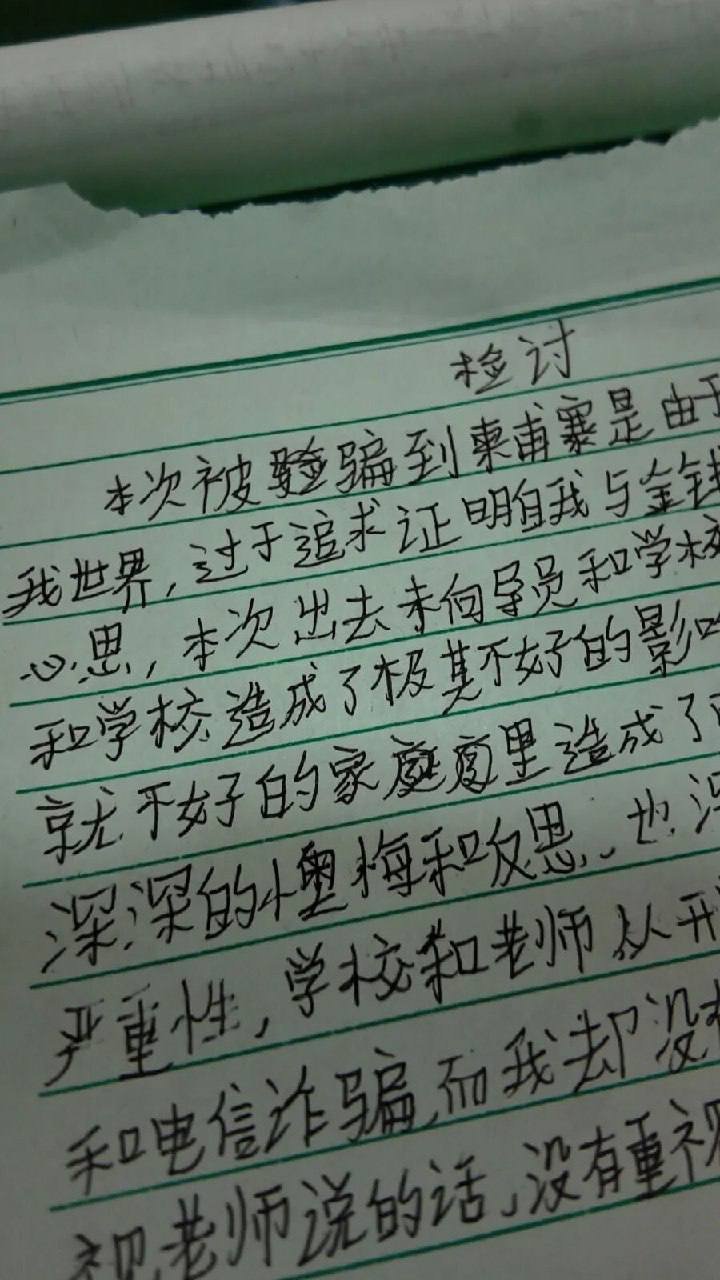 检讨
本次被验骗到柬甫寨是由于
我世界,过于追求证明自我与金钱
心思,本次出去未向导员和学校
和学校造成了极其不好的影响
就不好的家庭庭里造成了
深深的懊悔和反思、也没
严重性,学校和老师从开
和电信诈骗,而我却没有
视老师说的话、没有重视